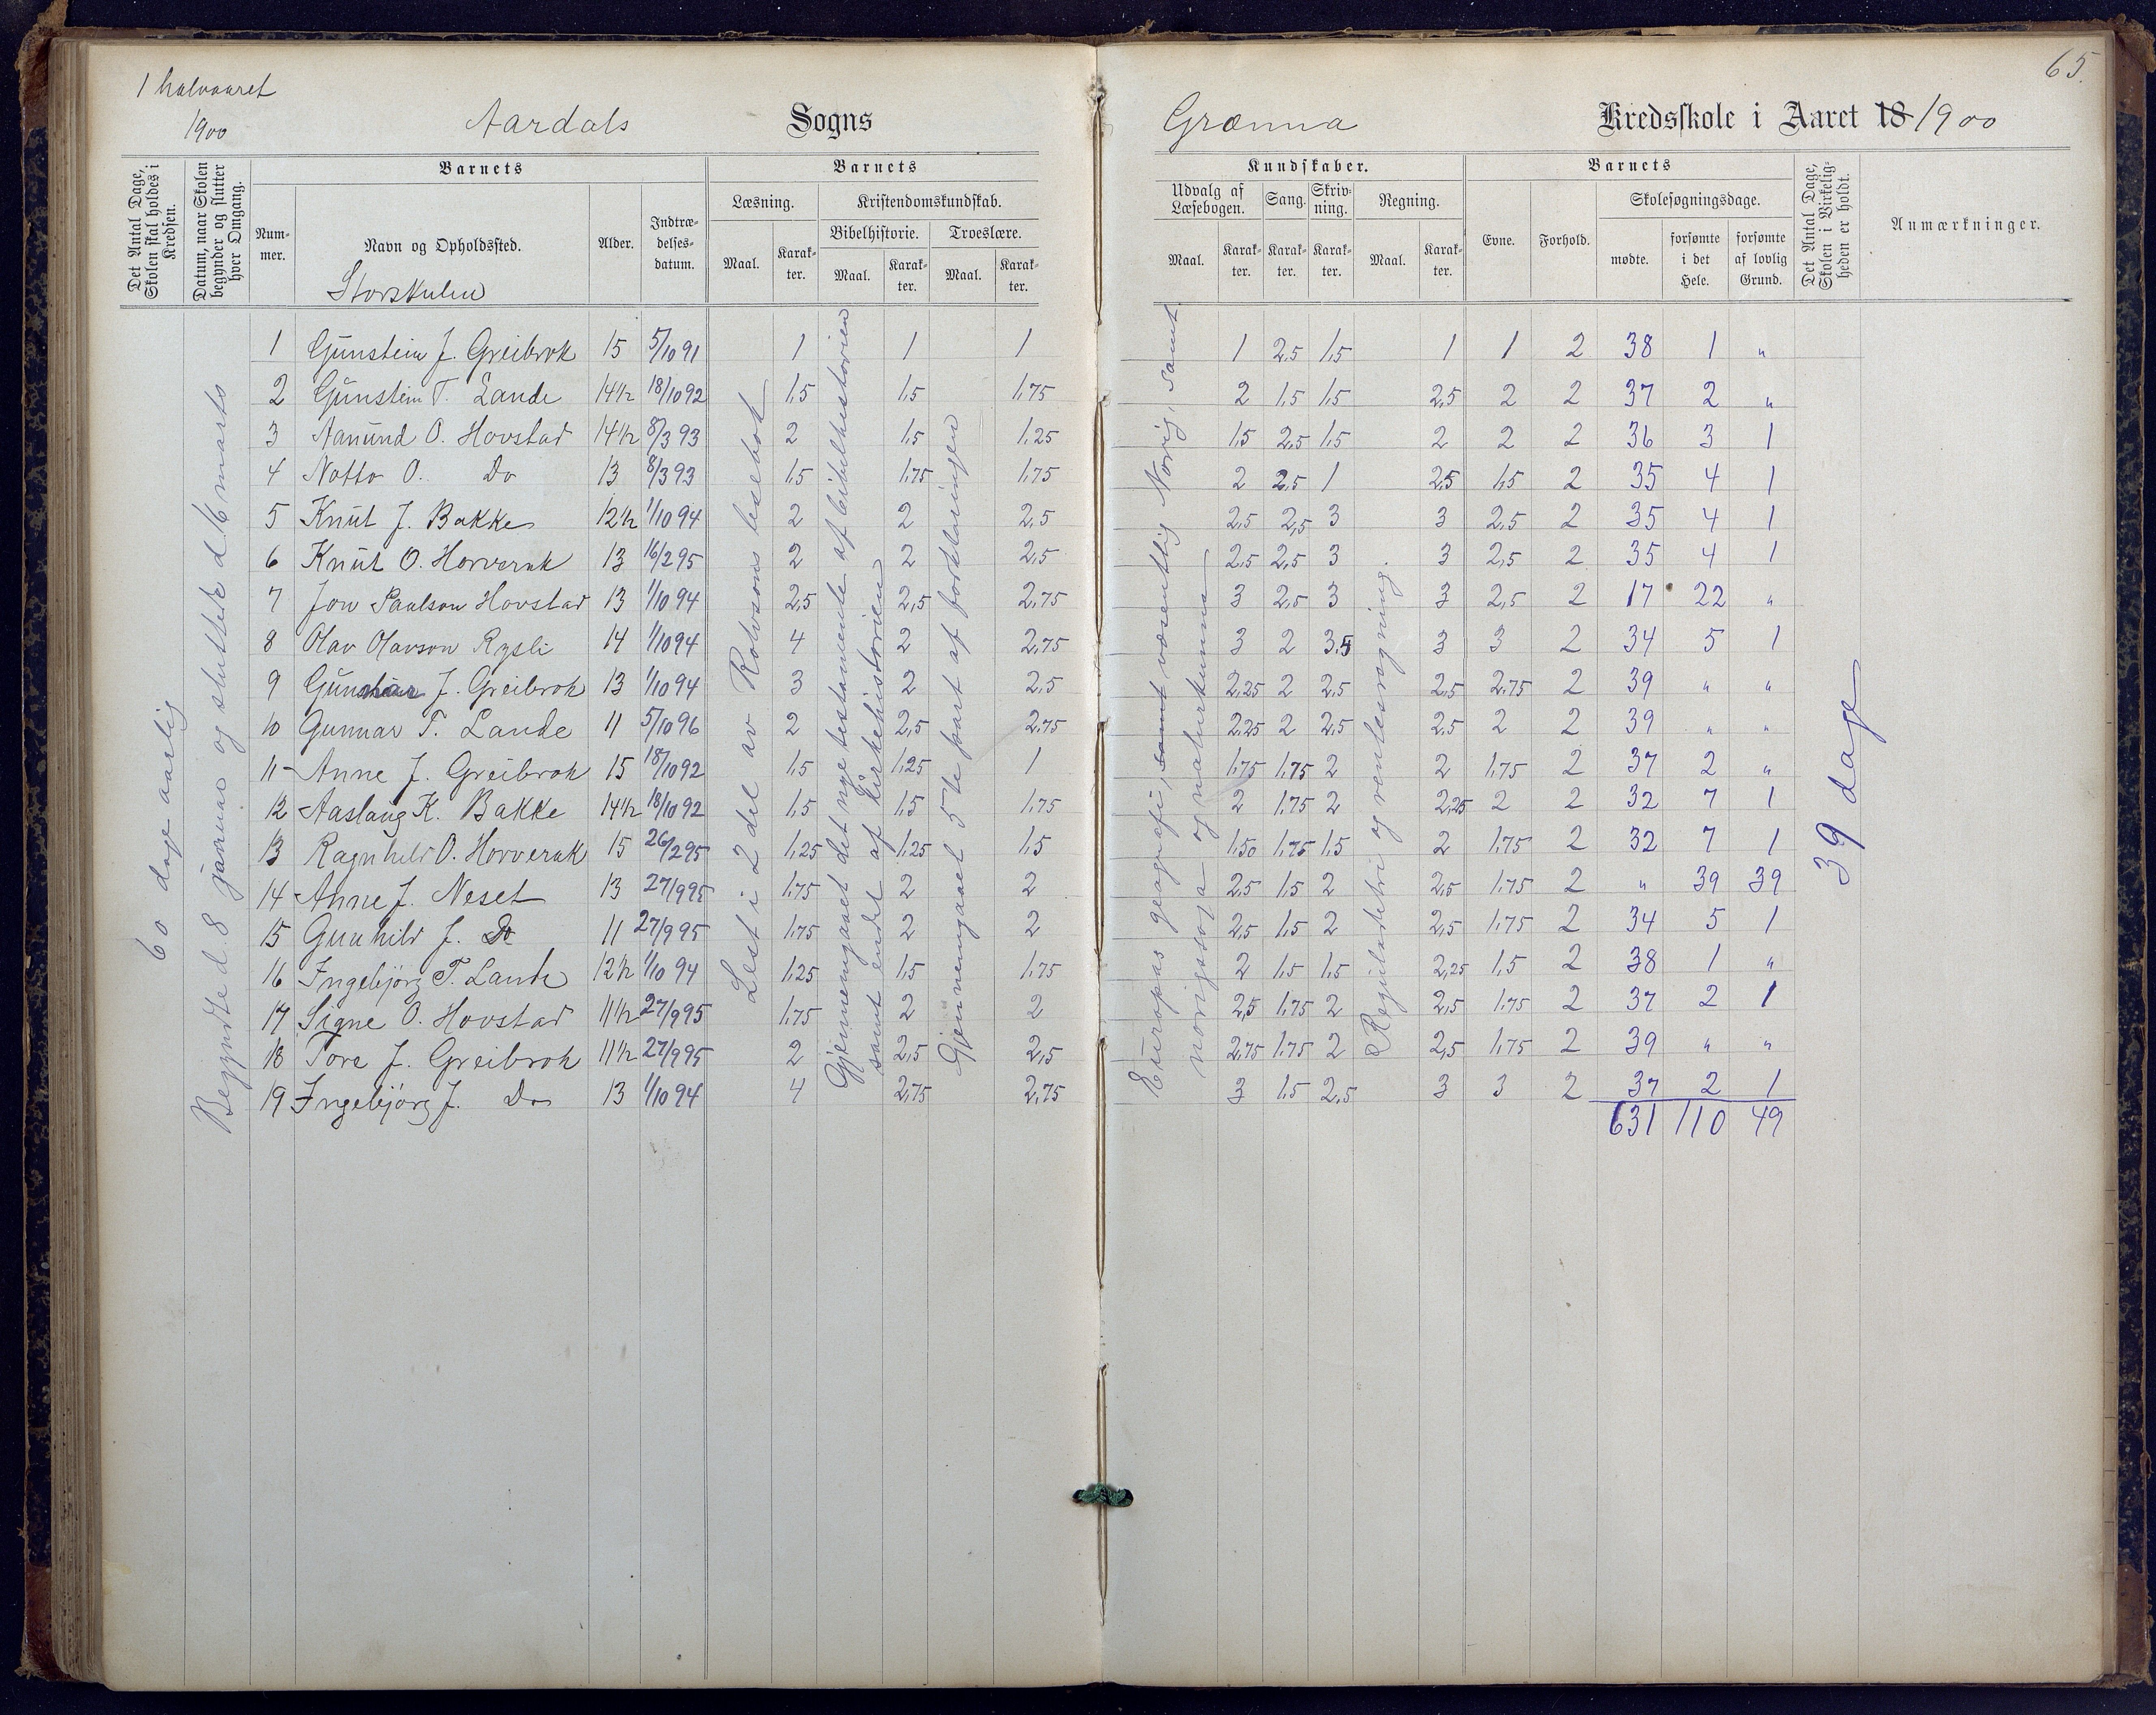 1 halvaaret
1900
Aardals Sogns
Det Antal Dage, Skolen skal holdes i Kredsen.
Datum, naar Skolen begynder og slutter hver Omgang.
Barnets
Nummer.
Navn og Opholdssted.
Storskulen
Alder.
Indtrædelsesdatum.
Barnets
Læsning.
Maal.
Karakter.
Kristendomskundskab.
Bibelhistorie.
Maal.
Karakter.
Troeslære.
Maal.
Karakter.
60 dage aarlig
Begyndte d. 8 januar og sluttede d 16 marts
Lest i 2 del av Rolvsons lesebok
Gjennemgaaet det nye testamente af bibelhistorien
samt endel af kirkehistorien
Gjennemgaaet 5te part af forklaringen
1 Gunstein J. Greibrok 15 5/10 91 1 1 1
2 Gunstein T. Lande 14½ 18/10 92 1,5 1,5 1,75
3 Aanund O. Hovstad 14½ 8/3 93 2 1,5 1,25
4 Notto O. Do 13 8/3 93 1,5 1,75 1,75
5 Knut J. Bakke 12½ 1/10 94 2 2 2,5
6 Knut O. Horverak 13 16/2 95 2 2 2,5
7 Jon Paulson Hovstad 13 1/10 94 2,5 2,5 2,75
8 Olav Olavson Rysli 14 1/10 94 4 2 2,75
9 Gunnar J. Greibrok 13 1/10 94 3 2 2,5
10 Gunnar T. Lande 11 5/10 96 2 2,5 2,75
11 Anne J. Greibrok 15 18/10 92 1,5 1,25 1
12 Aaslaug K. Bakke 14½ 18/10 92 1,5 1,5 1,75
13 Ragnhild O. Horverak 15 26/2 95 1,25 1,25 1,5
14 Anne J. Neset 13 27/9 95 1,75 2 2
15 Gunhild J. Do 11 27/9 95 1,75 2 2
16 Ingebjörg T. Lande 12½ 1/10 94 1,25 1,5 1,75
17 Signe O. Hovstad 11½ 27/9 95 1,75 2 2
18 Tore J. Greibrok 11½ 27/9 95 2 2,5 2,5
19 Ingebjörg J. Do 13 1/10 94 4 2,75 2,75
65.
Grænna Kredsskole i Aaret 18 1900
Kundskaber.
Udvalg af Læsebogen.
Maal.
Karakter.
Sang.
Karakter.
Skrivning.
Karakter.
Regning.
Maal.
Karakter.
Barnets
Evne.
Forhold.
Skolesøgningsdage.
mødte.
forsømte i det Hele.
forsømte af lovlig Grund.
Det Antal Dage, Skolen i Virkeligheden er holdt.
Anmærkninger.
Europas geografi, samt væsentlig Norig, samt
norigssoga og naturkunna
Reguladetri og rentesregning.
1 2,5 1,5 1 1 2 38 1 "
2 1,5 1,5 2,5 2 2 37 2 "
1,5 2,5 1,5 2 2 2 36 3 1
2 2,5 1 2,5 1,5 2 35 4 1
2,5 2,5 3 3 2,5 2 35 4 1
2,5 2,5 3 3 2,5 2 35 4 1
3 2,5 3 3 2,5 2 17 22 "
3 2 3,5 3 3 2 34 5 1
2,25 2 2,5 2,5 2,75 2 39 " "
2,25 2 2,5 2,5 2 2 39 " "
1,75 1,75 2 2 1,75 2 37 2 "
2 1,75 2 2,25 2 2 32 7 1
1,50 1,75 1,5 2 1,75 2 32 7 1
2,5 1,5 2 2,5 1,75 2 " 39 39
2,5 1,5 2 2,5 1,75 2 34 5 1
2 1,5 1,5 2,25 1,5 2 38 1 "
2,5 1,75 2 2,5 1,75 2 37 2 1
2,75 1,75 2 2,5 1,75 2 39 " "
3 1,5 2,5 3 3 2 37 2 1
631 110 49
39 dage